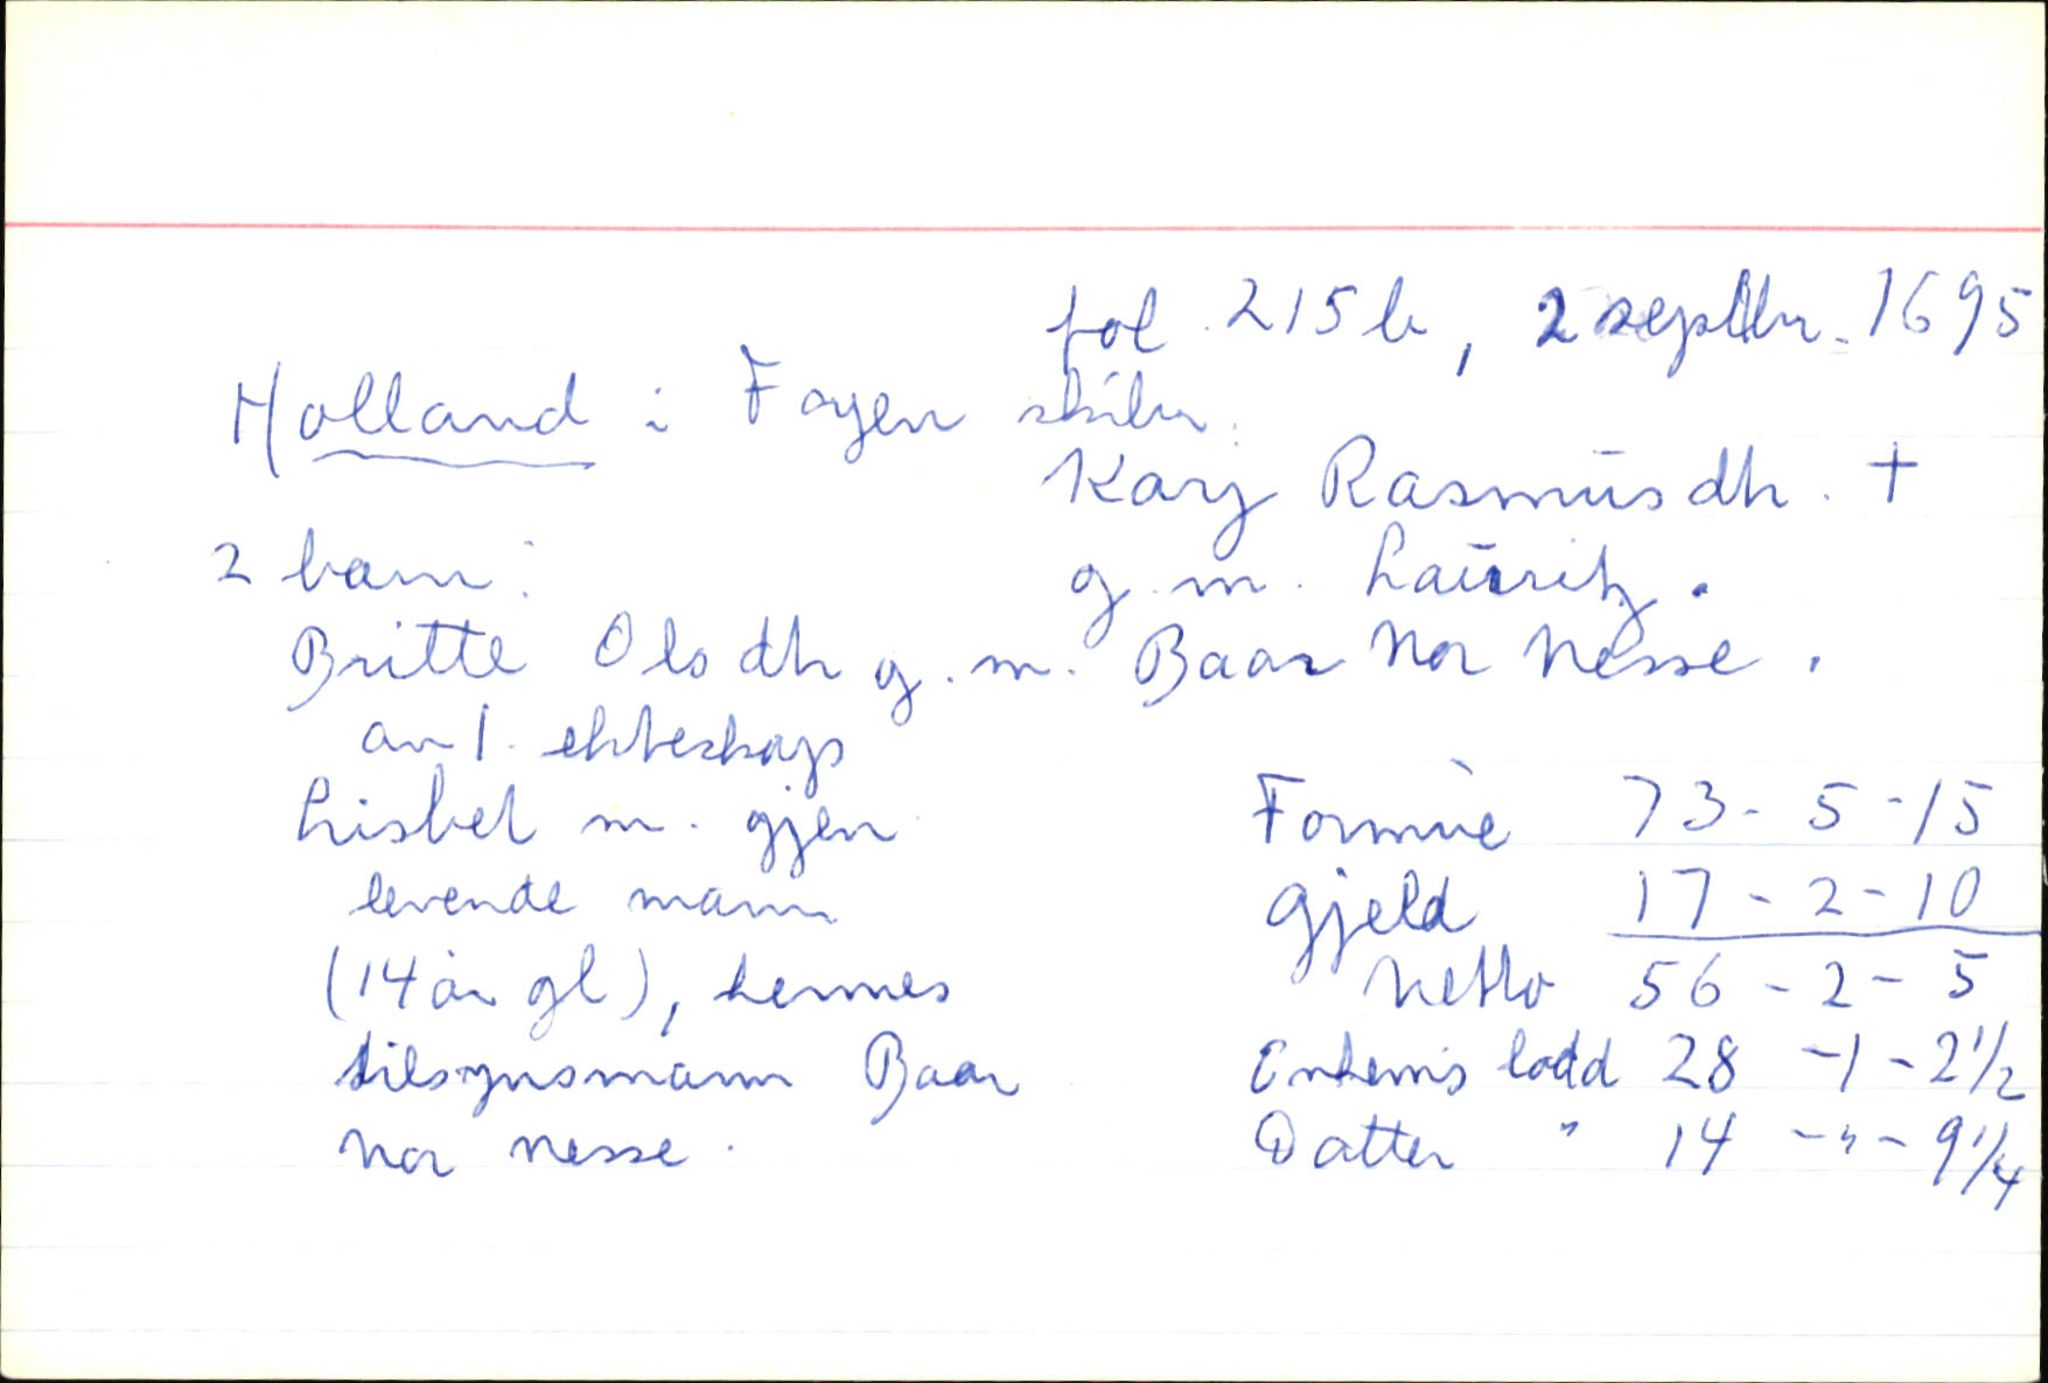 fol 215b, 2 septbr. 1695
Holland i Fayen skibr.
Karj Rasmusdtr. †
2 barn: g. m. Lauritz.
Britte Olsdtr g. m. Baar Nor Nesse.
av 1. ekteskap
Lisbet m. gjen
levende mann
(14 år gl), hennes
tilsynsmann Baar
Nor Nesse.
Formue 73 - 5 - 15
Gjeld 17 - 2 - 10
Netto 56 - 2 - 5
Enkem's lodd 28 - 1 - 2 1/2
Datter " 14 - " - 9 1/4